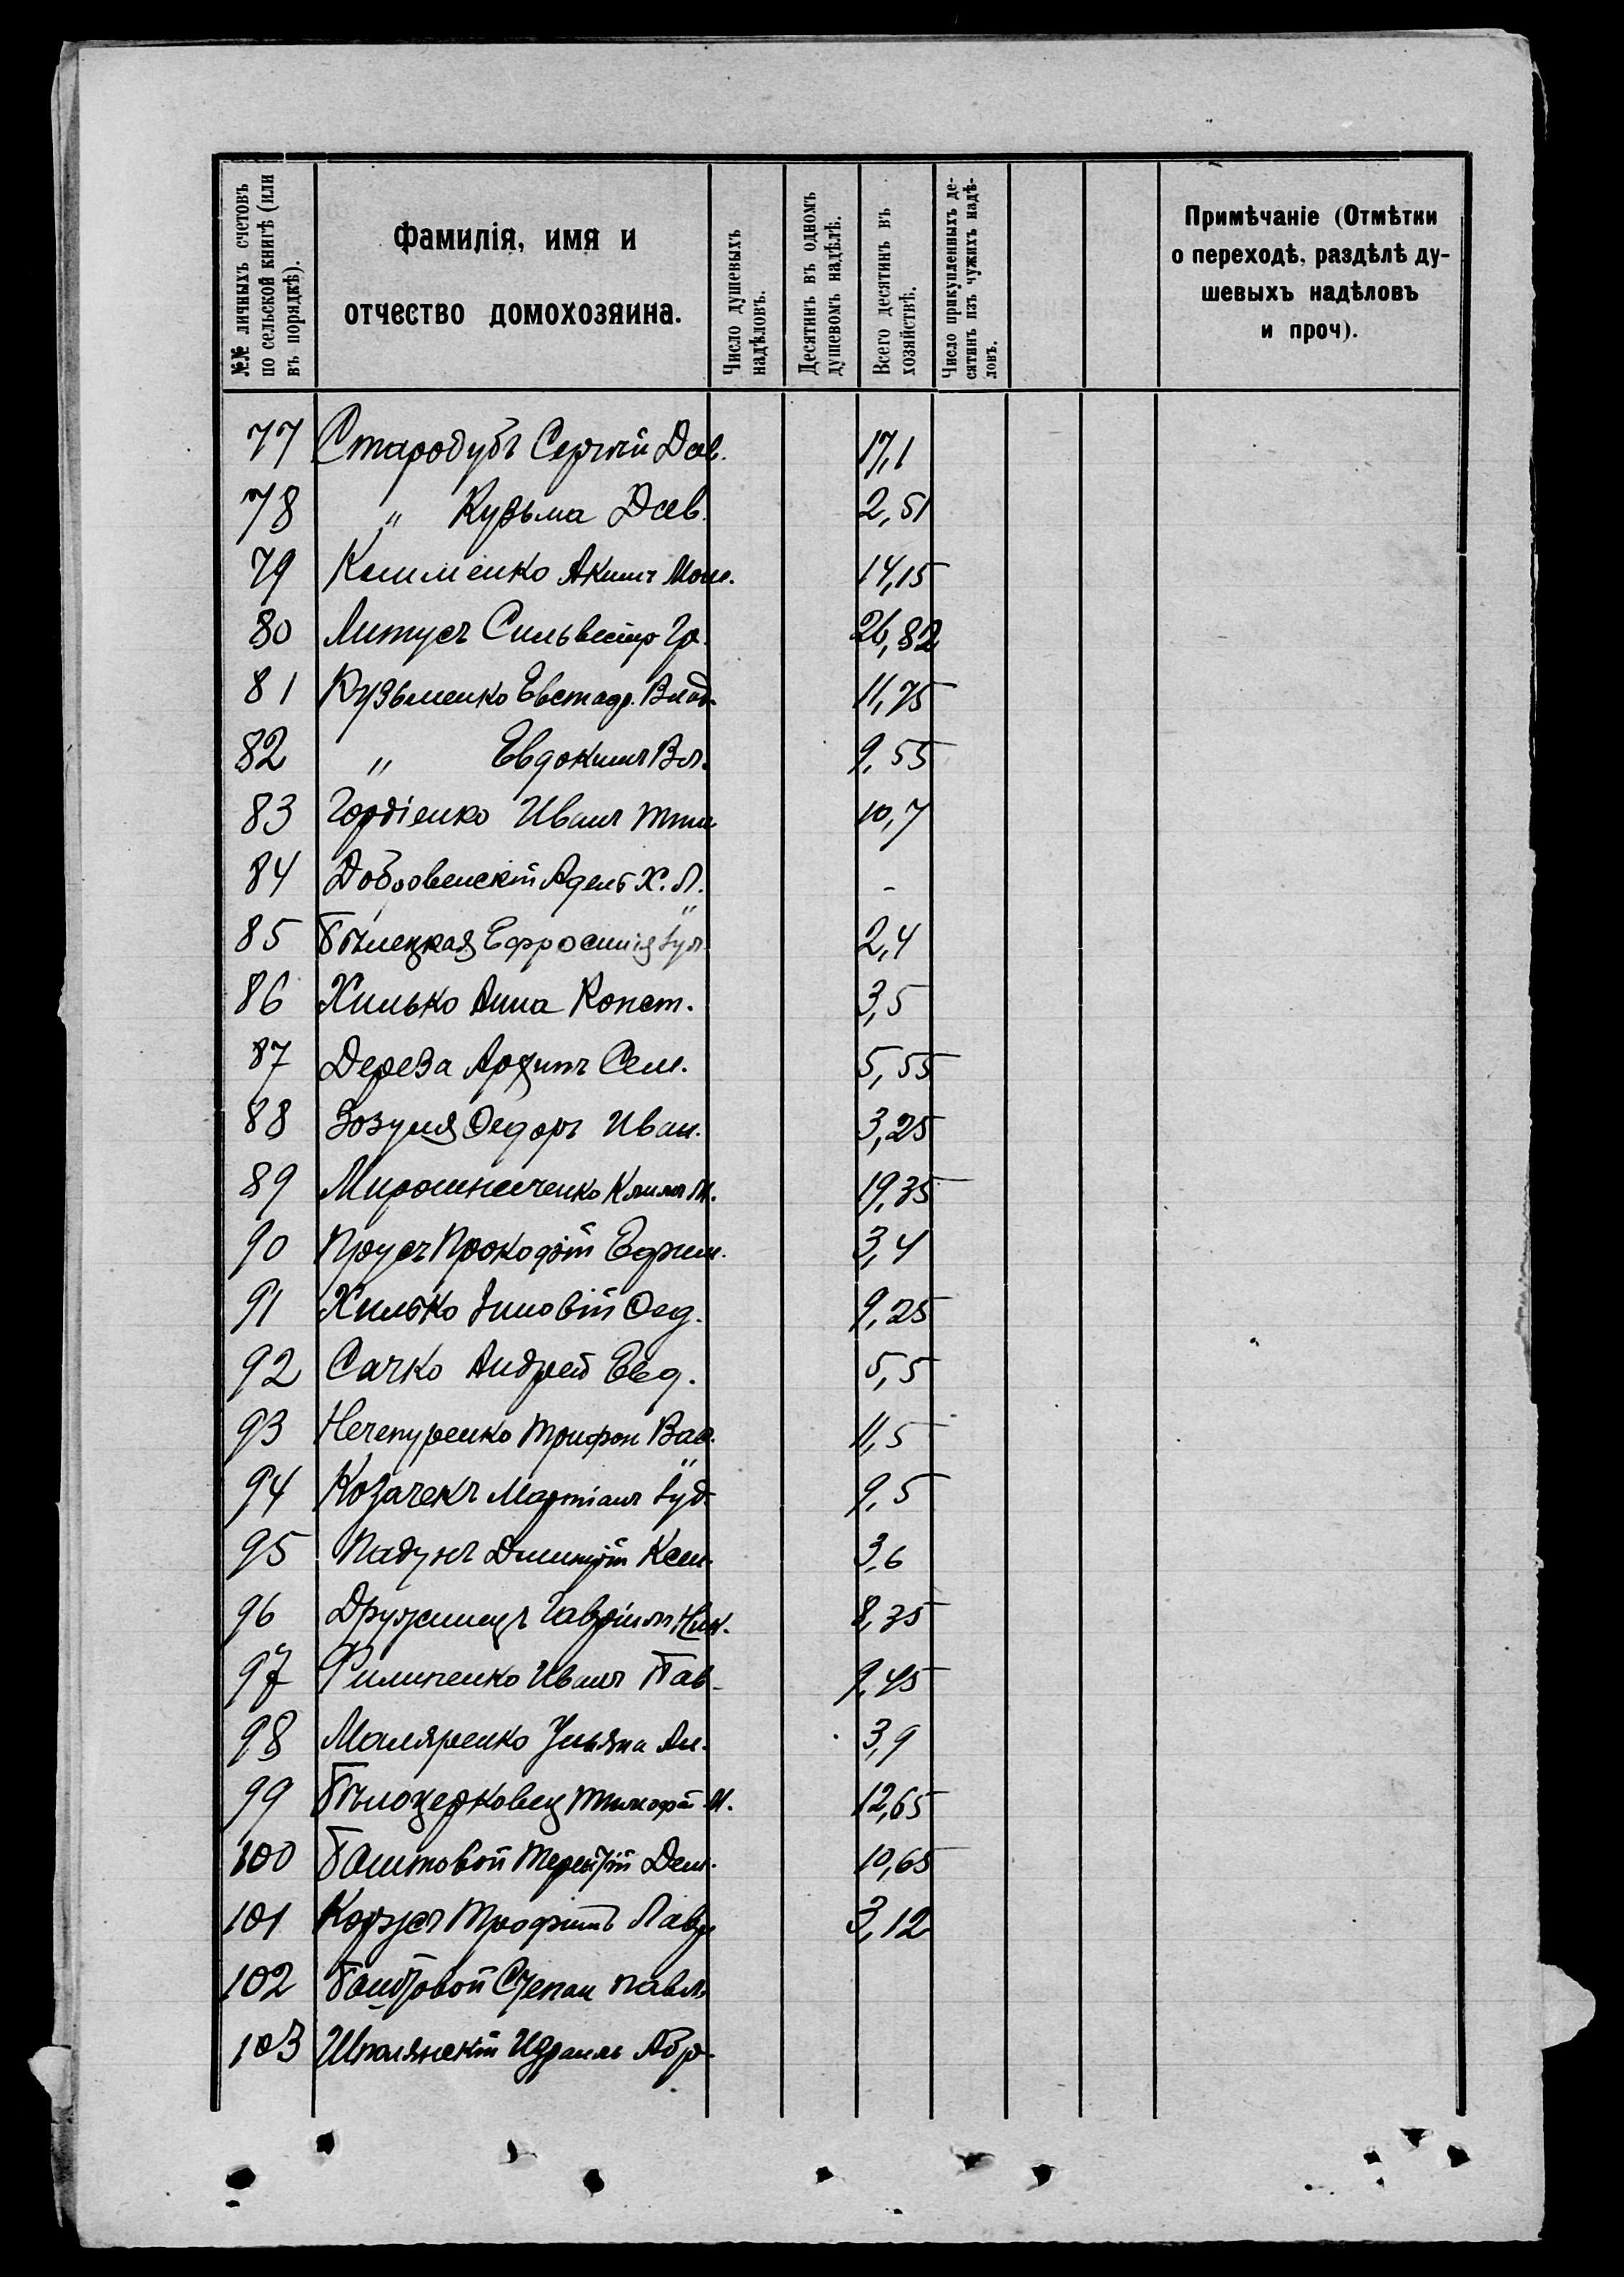 №№ личныхъ счетовъ по сельской книгѣ (или въ порядкѣ).
Фамилія, имя и отчество домохозяина.
Число душевыхъ надѣловъ.
Десятинъ въ одномъ душевомъ надѣлѣ.
Всего десятинъ въ хозяйствѣ.
Число прикупленныхъ десятинъ изъ чужихъ надѣловъ.
Примѣчаніе (Отмѣтки о переходѣ, раздѣлѣ душевыхъ надѣловъ и проч).
77 Стародубъ Сергѣй Дав. 17,1
78 " Кузьма Дав. 2,51
79 Акимъ 14,15
80 Литусъ Сильвестр Гр. 26,82
81 Кузьменко Евстаф. Влад. 11,75
82 " Евдокимъ Вл. 9,55
83 Гордіенко Иванъ Тим 10,7
84 Добровенскій Х. Л. -
85 Бѣлецкая Ефросинія 2,4
86 Хилько Анна Конст. 3,5
87 Дереза Сем. 5,55
88 Зозуля Ѳедоръ Иван. 3,25
89 Мирошниченко Климъ М. 19,35
90 Проусъ Прокофій Ефим. 3,4
91 Хилько Зиновій Ѳед. 9,25
92 Сачко Андрей Евд. 5,5
93 Нечепуренко Трифон Вас. 11,5
94 Козачекъ Мартіанъ 9,5
95 Падунъ Дмитрій 3,6
96 Дружинецъ Гавріилъ Ник. 8,35
97 Филипенко Иванъ Пав. 9,45
98 Маляренко Ульяна Ан. 3,9
99 Бѣлоцерковец Тимофей И. 12,65
100 Баштовой Терентій Дем. 10,65
101 Трофимъ Лавр 3,12
102 Баштовой Степан Павл.
103 Шполянскій Израиль Абр.